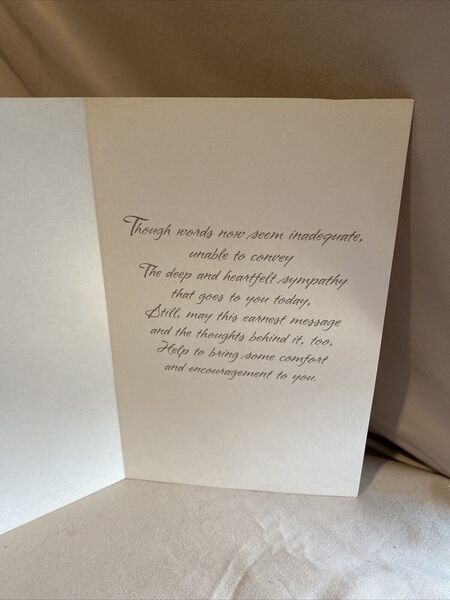 Though words now seem inadequate,
unable to convey
The deep and heartfelt sympathy
that goes to you today,
Still, may this earnest message
and the thoughts behind it, too,
Help to bring some comfort
and encouragement to you.